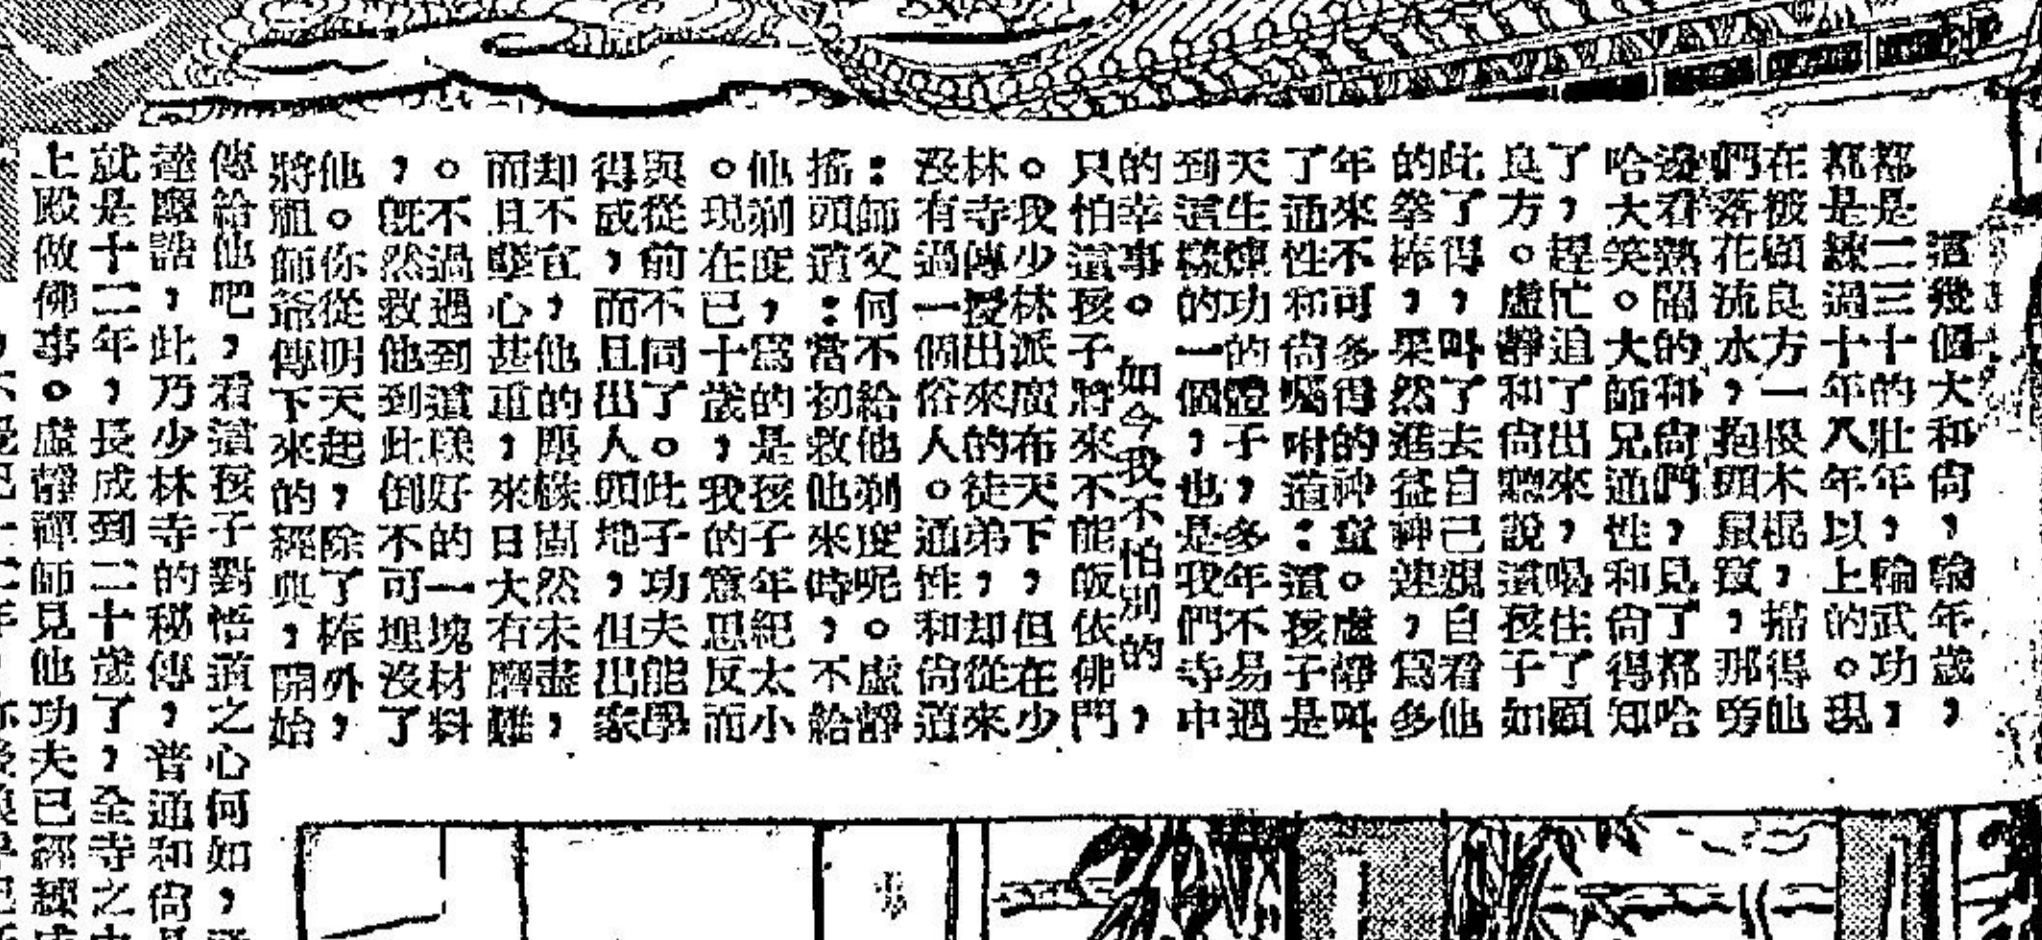 這幾個大和尚，輪年歲，
都是二三十的壯年，輪武功，
都是練過十年八年以上的。現
在被顧良方一根木棍，掃得他
們落花流水，抱頭鼠竄，那旁
邊看熱鬧的和尚們，見了都哈
哈大笑。大師兄通性和尚得知
了，趕忙追了出來，喝住了顧
良方。虛靜和尚聽說這孩子如
此了得，叫了去自己親自看他
的拳棒，果然進益神速，爲多
年來不可多得的神童。虛靜叫
了通性和尚囑咐道：這孩子是
天生煉功的體子，多年不易遇
到這樣的一個，也是我們寺中
的幸事。如今我不怕別的，
只怕這孩子將來不能皈依佛門
。我少林派廣布天下，但在少
林寺傳授出來的徒弟，却從來
沒有過一個俗人。通性和尚道
：師父何不給他剃度呢。虛靜
搖頭道：當初救他來時，不給
他剃度，爲的是孩子年紀太小
。現在已十歲，我的意思反而
與從前不同了。此子功夫能學
得成，而且出人頭地，但出家
却不宜，他的塵緣固然未盡，
而且孽心甚重，來日大有磨難
。不過遇到這樣好的一塊材料
，既然救他到此倒不可埋沒了
他。你從明天起，除了棒外，
將祖師爺傳下來的經典，開始
傳給他吧，看這孩子對悟道之心何如，
達摩諾，此乃少林寺的秘傳，普通和尚
就是十二年，長成到二十歲了，全寺之中
上殿做佛事。虛靜禪師見他功夫已經練成